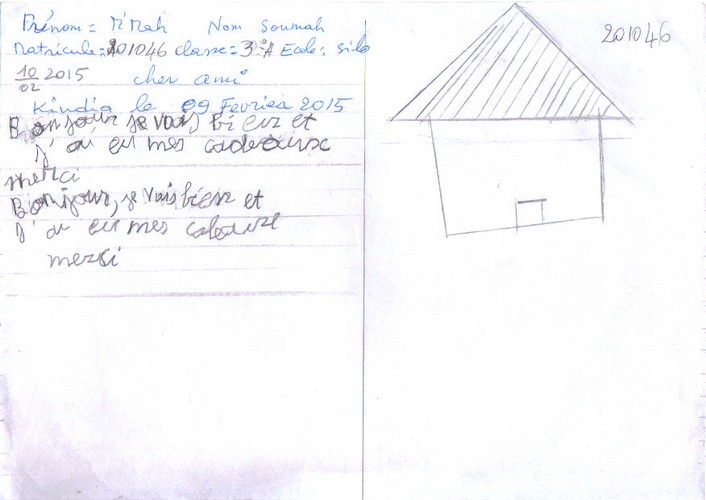 Prénom = M'Mah Nom Soumah
Matricule = 201046 classe = 3è A Ecole: Silo
10/02 2015 cher ami
Kindia le 09 Fevrier 2015
Bonjour je vais bien et
j'ai eu mes cadeaux
merci
Bonjour, je vais bien et
j'ai eu mes cadeaux
merci
201046